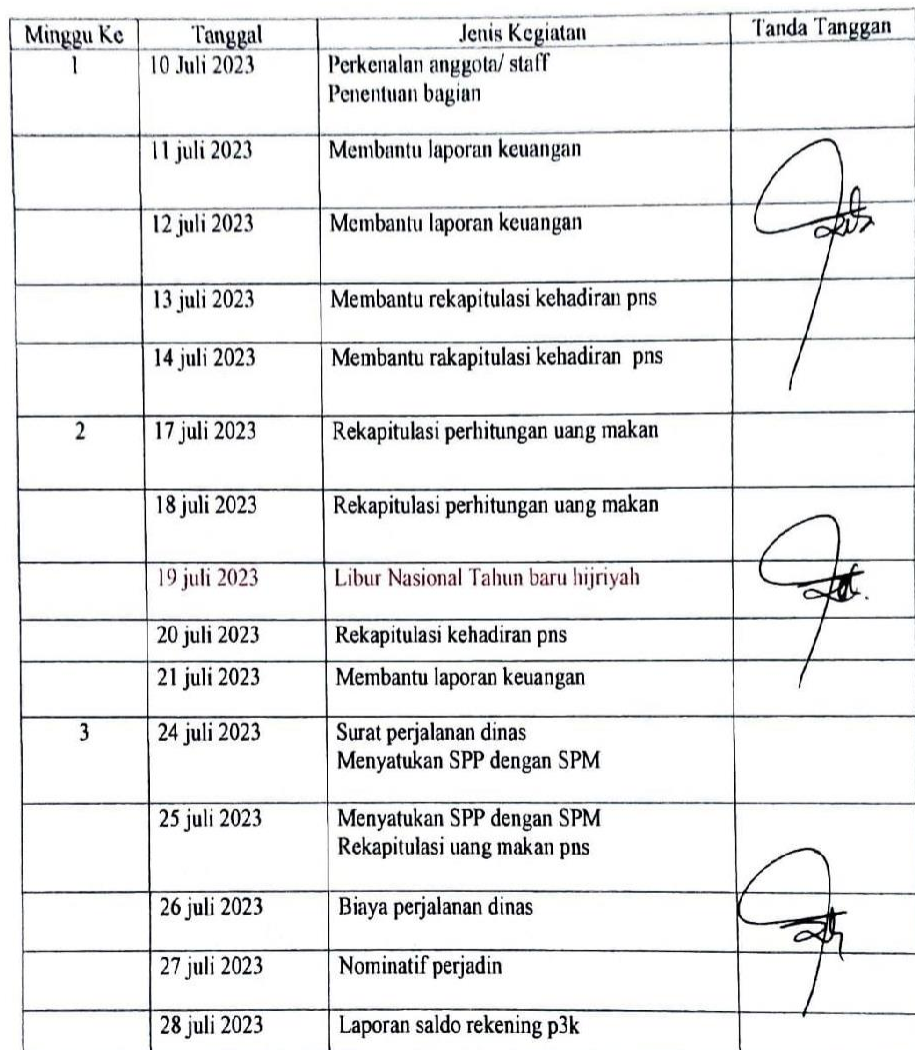 Minggu Ke Tanggal Jenis Kegiatan Tanda Tanggan
1 10 Juli 2023 Perkenalan anggota/ staff
Penentuan bagian
11 juli 2023 Membantu laporan keuangan
12 juli 2023 Membantu laporan keuangan
13 juli 2023 Membantu rekapitulasi kehadiran pns
14 juli 2023 Membantu rakapitulasi kehadiran pns
2 17 juli 2023 Rekapitulasi perhitungan uang makan
18 juli 2023 Rekapitulasi perhitungan uang makan
19 juli 2023 Libur Nasional Tahun baru hijriyah
20 juli 2023 Rekapitulasi kehadiran pns
21 juli 2023 Membantu laporan keuangan
3 24 juli 2023 Surat perjalanan dinas
Menyatukan SPP dengan SPM
25 juli 2023 Menyatukan SPP dengan SPM
Rekapitulasi uang makan pns
26 juli 2023 Biaya perjalanan dinas
27 juli 2023 Nominatif perjadin
28 juli 2023 Laporan saldo rekening p3k